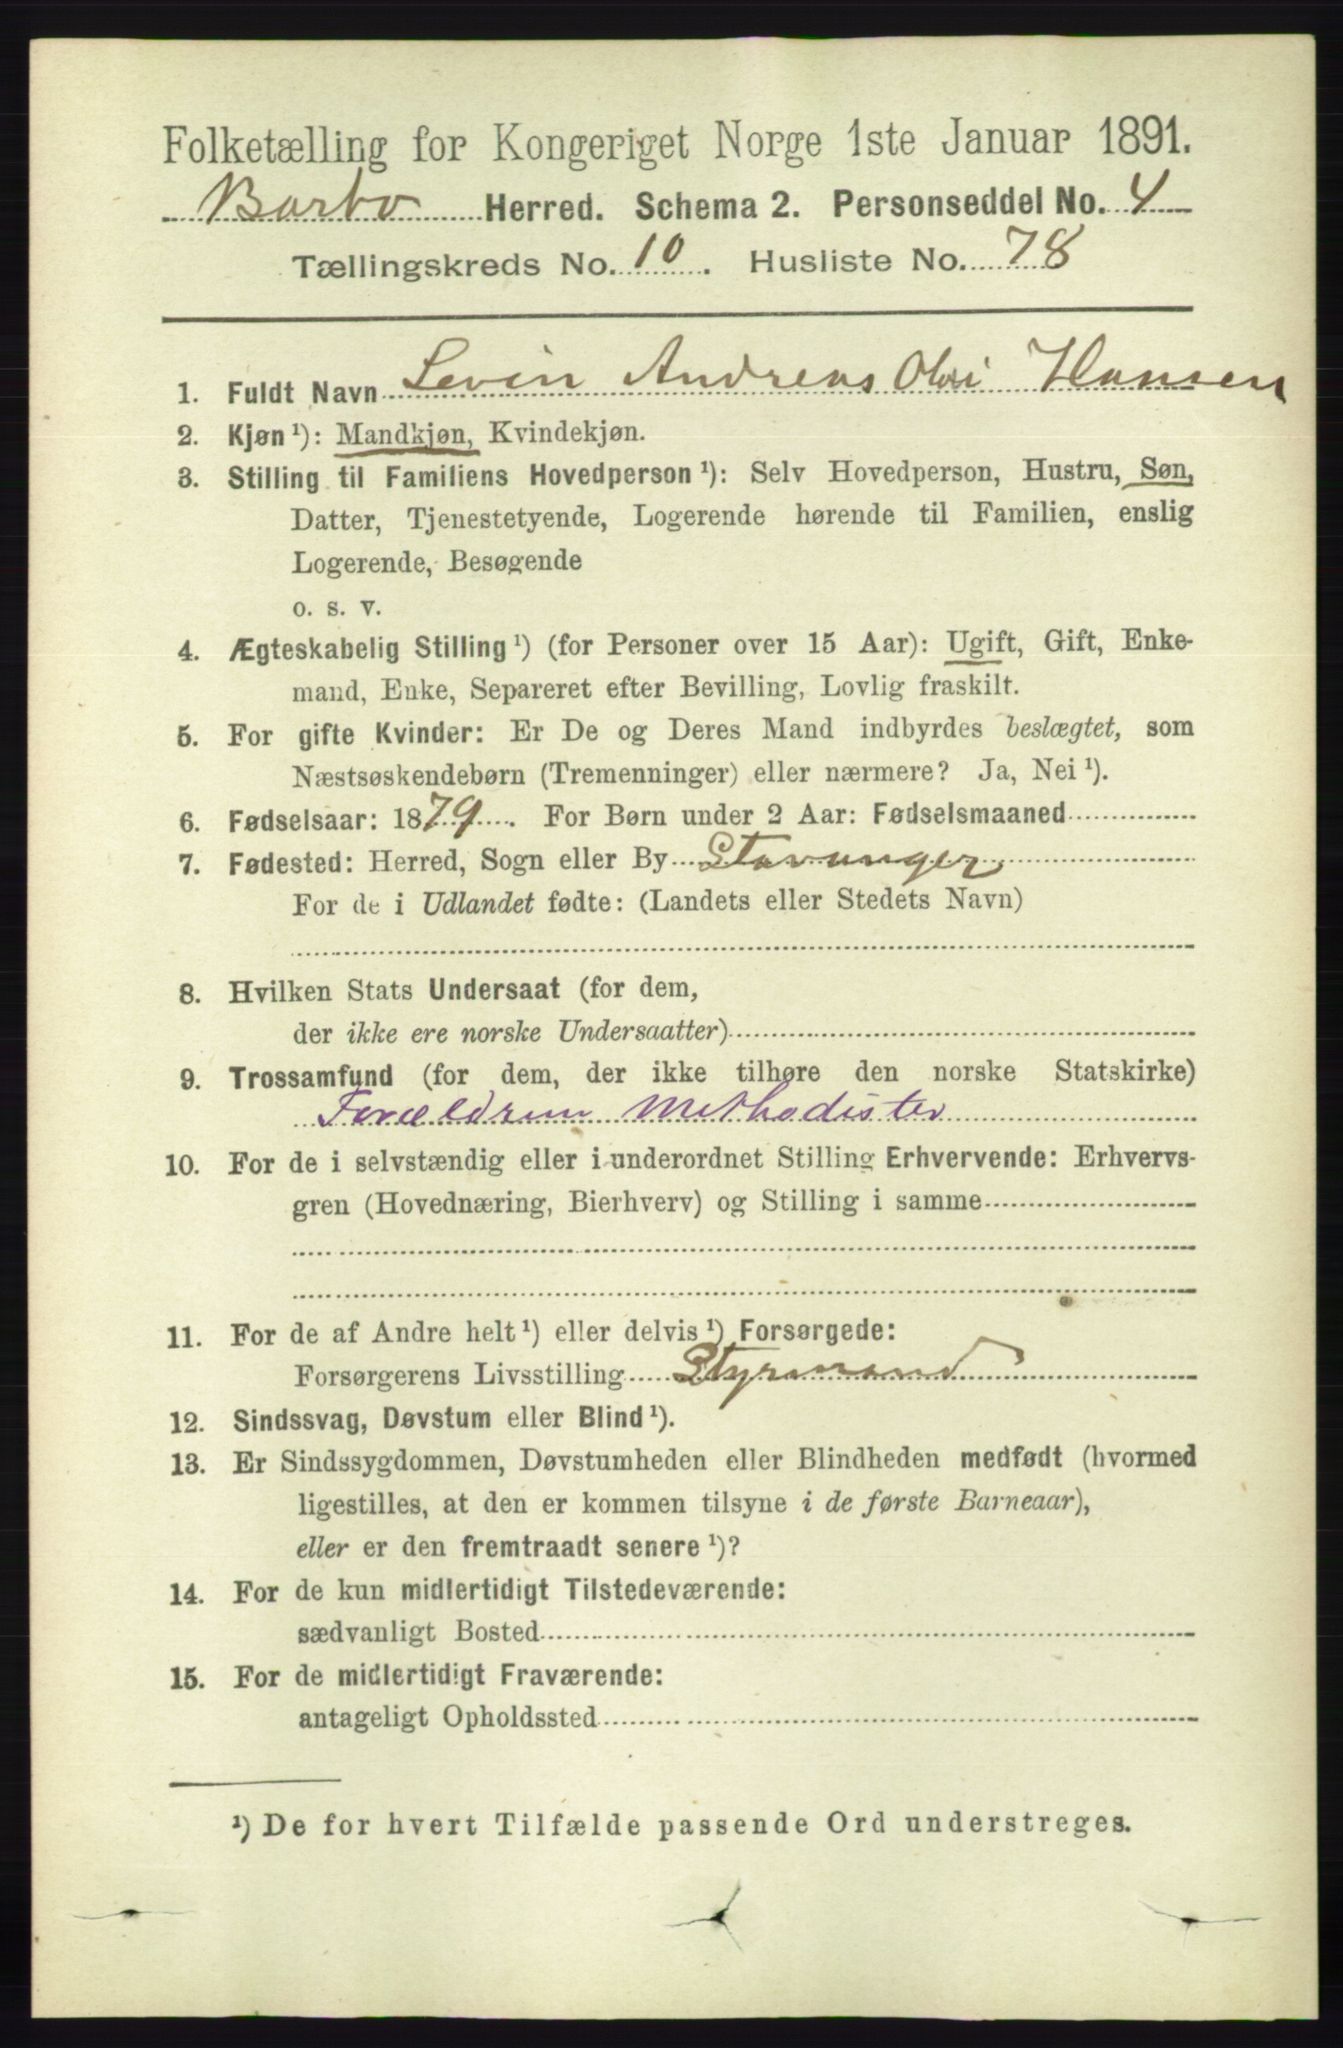 Folketælling for Kongeriget Norge 1ste Januar 1891.
Barbo Herred. Schema 2. Personseddel No. 4
Tællingskreds No. 10. Husliste No. 78
1. Fuldt Navn Levin Andreas Hansen
2. Kjøn ¹): Mandkjøn, Kvindekjøn.
3. Stilling til Familiens Hovedperson ¹): Selv Hovedperson, Hustru, Søn,
Datter, Tjenestetyende, Logerende hørende til Familien, enslig
Logerende, Besøgende
o. s. v.
4. Ægteskabelig Stilling ¹) (for Personer over 15 Aar): Ugift, Gift, Enke-
mand, Enke, Separeret efter Bevilling, Lovlig fraskilt.
5. For gifte Kvinder: Er De og Deres Mand indbyrdes beslægtet, som
Næstsøskendebørn (Tremenninger) eller nærmere? Ja, Nei ¹).
6. Fødselsaar: 1879. For Børn under 2 Aar: Fødselsmaaned
7. Fødested: Herred, Sogn eller By Stavanger
For de i Udlandet fødte: (Landets eller Stedets Navn)
8. Hvilken Stats Undersaat (for dem,
der ikke ere norske Undersaatter)
9. Trossamfund (for dem, der ikke tilhøre den norske Statskirke)
Forældrene Methodister
10. For de i selvstændig eller i underordnet Stilling Erhvervende: Erhvervs-
gren (Hovednæring, Bierhverv) og Stilling i samme
11. For de af Andre helt ¹) eller delvis ¹) Forsørgede:
Forsørgerens Livsstilling Styrmand
12. Sindssvag, Døvstum eller Blind ¹).
13. Er Sindssygdommen, Døvstumheden eller Blindheden medfødt (hvormed
ligestilles, at den er kommen tilsyne i de første Barneaar),
eller er den fremtraadt senere ¹)?
14. For de kun midlertidigt Tilstedeværende:
sædvanligt Bosted
15. For de midlertidigt Fraværende:
antageligt Opholdssted
¹) De for hvert Tilfælde passende Ord understreges.